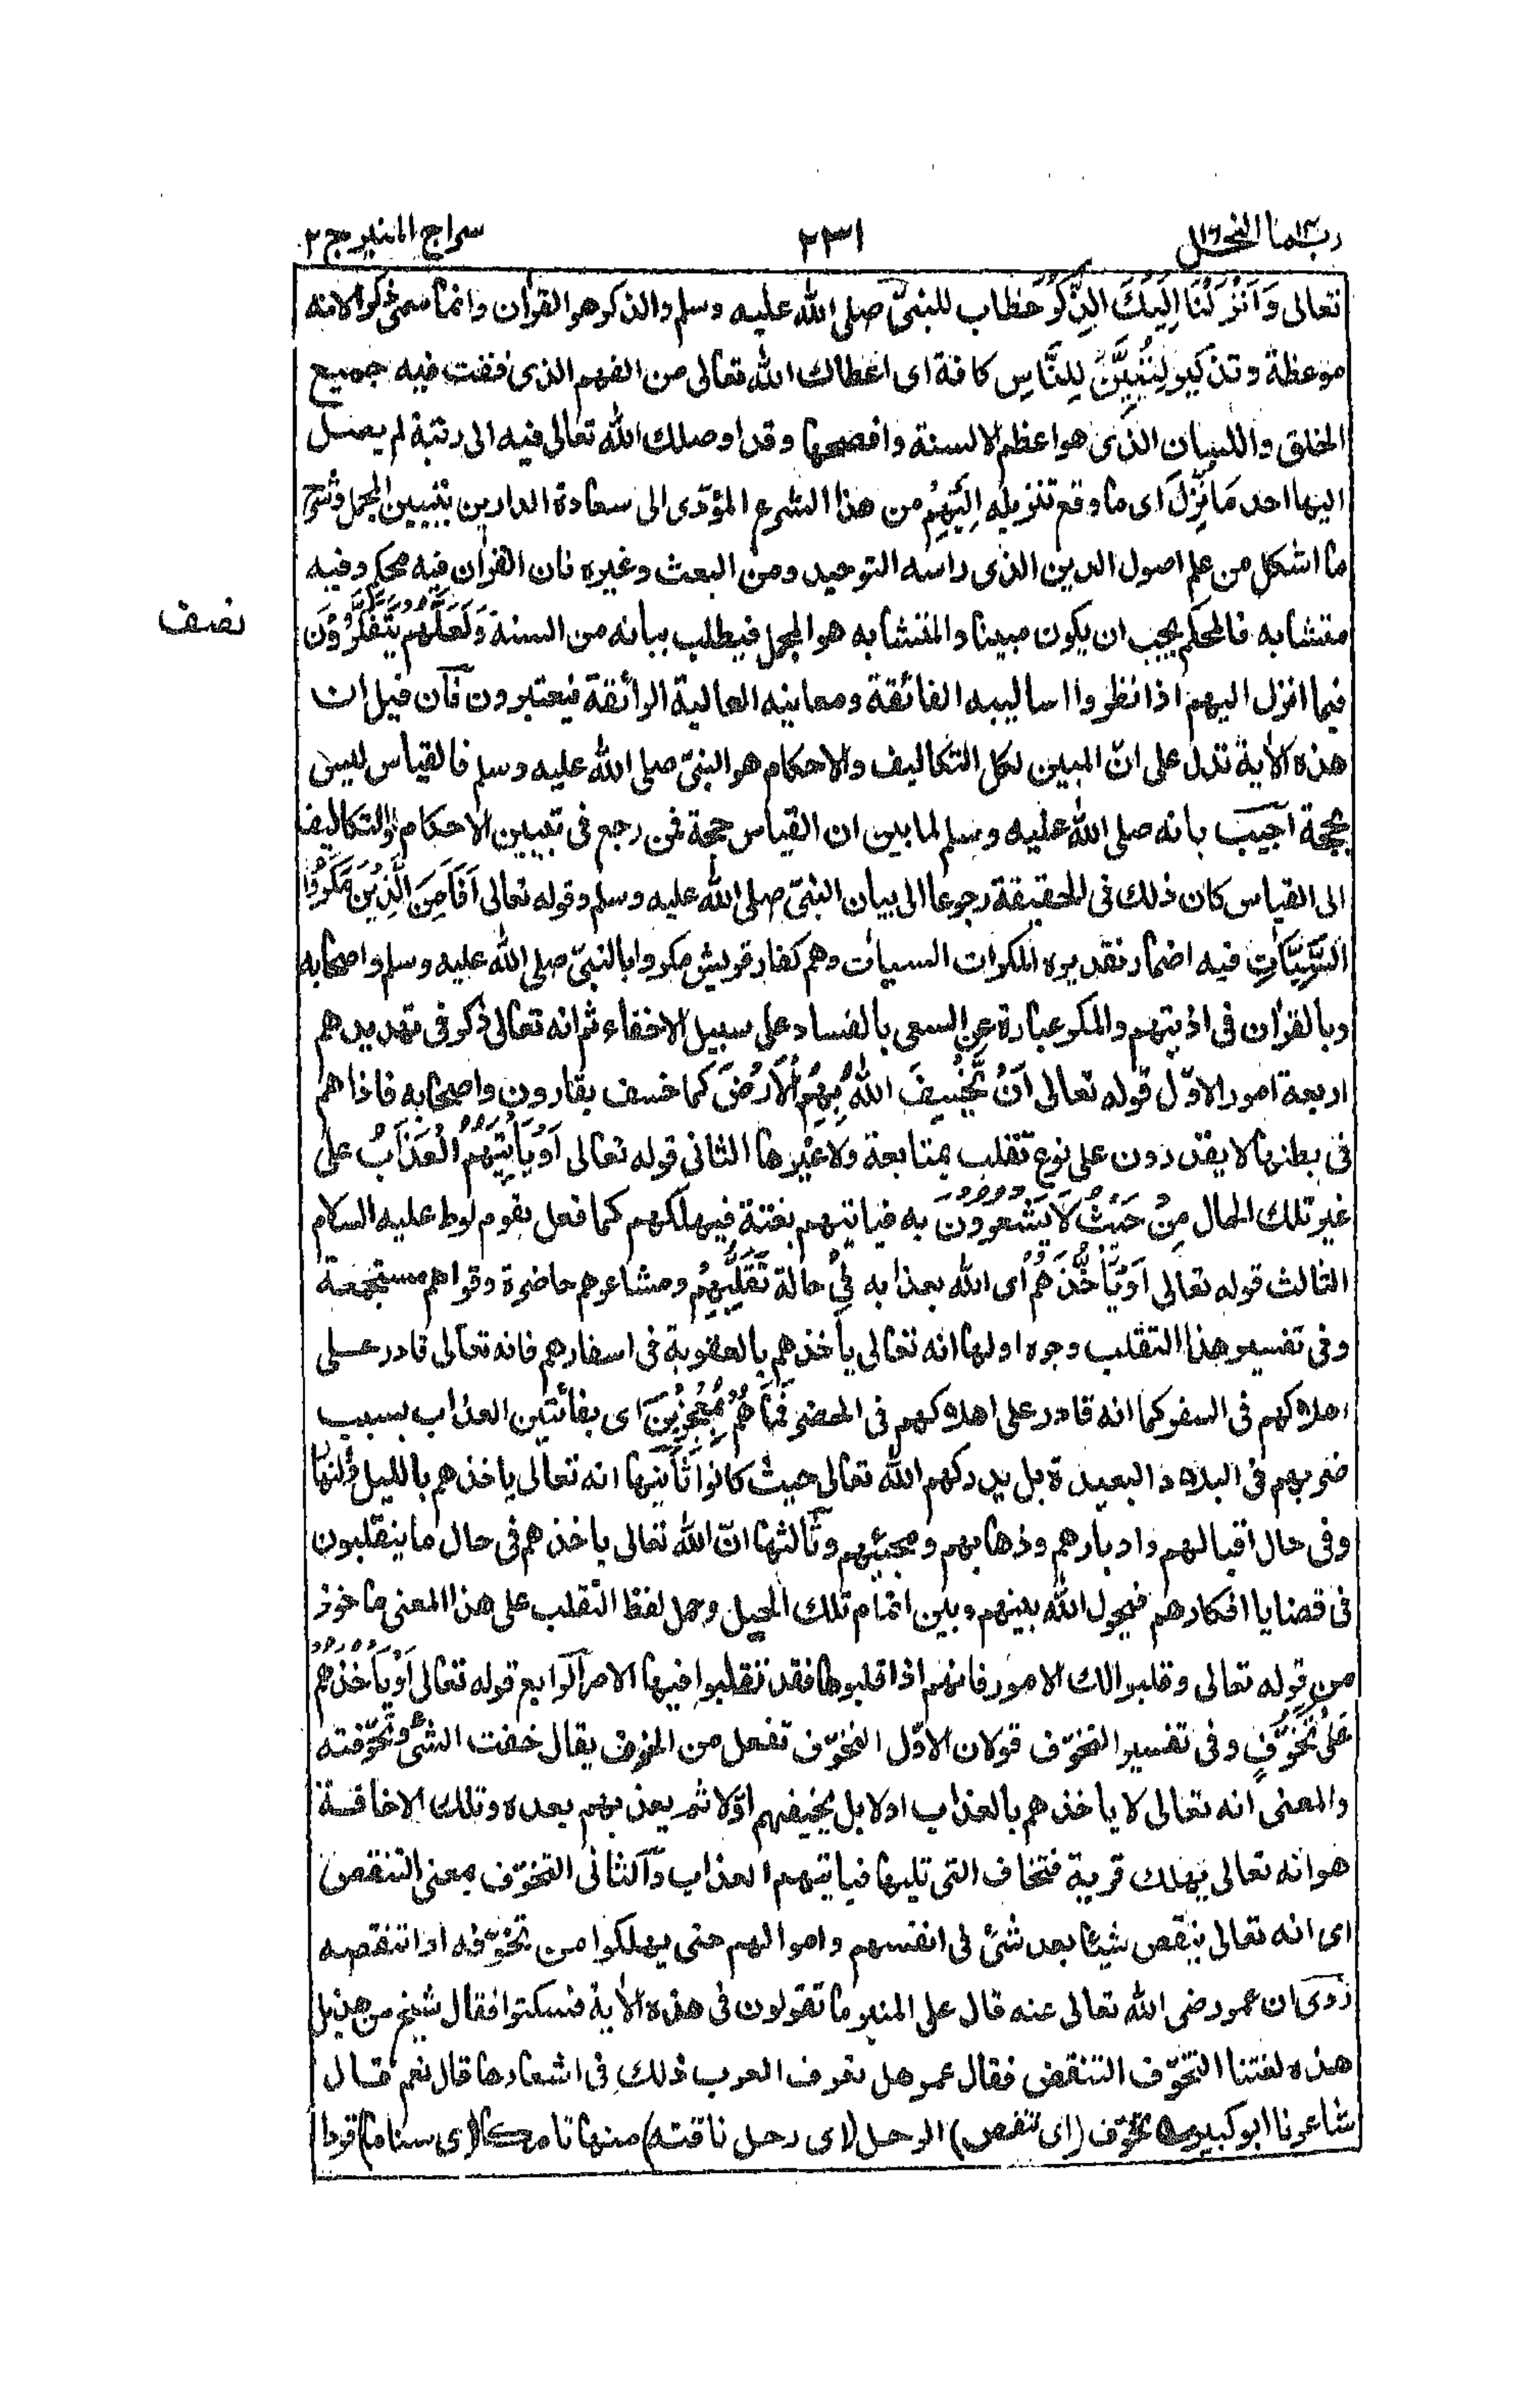 ربما۱۴ النحل۱۶ ۲۳۱ سراج المنير ج۲
تعالى وَاَنْزَلْنَا اِلَيْكَ الذِّكْرَ خطاب للنبىّ صلى الله عليه وسلم والذكر هو القراٰن وانما سمى ذكرا لانه
موعظة وتذكير لِتُبَيِّنَ لِلنَّاسِ كافة اى اعطاك الله تعالى من الفهم الذى فقت فيه جميع
الخلق واللسان الذى هو اعظم الالسنة وافصحها وقد اوصلك الله تعالى فيه الى رتبة لم يصل
اليها احد مَا نُزِّلَ اى ما وقع تنزيله اِلَيْهِمْ من هذا الشرع المؤدّى الى سعادة الدارين بتبيين المجمل وشرح
ما اشكل من علم اصول الدين الذى راسه التوحيد ومن البعث وغيره فان القراٰن فيه محكم وفيه
متشابه فالمحكم يجب ان يكون مبينا والمتشابه هو المجمل فيطلب بيانه من السنة وَلَعَلَّهُمْ يَتَفَكَّرُوْنَ
نصف
فيما انزل اليهم اذا نظروا اساليبه الفائقة ومعانيه العالية الرائقة فيعتبرون فآن قيل ان
هذه الاٰية تدل على انّ المبين لكل التكاليف والاحكام هو النبىّ صلى الله عليه وسلم فالقياس ليس
بحجة اجيب بانه صلى الله عليه وسلم لما بين ان القياس حجة فمن رجع فى تبيين الاحكام والتكاليف
الى القياس كان ذلك فى الحقيقة رجوعا الى بيان النبىّ صلى الله عليه وسلم وقوله تعالى اَفَاَمِنَ الَّذِيْنَ مَكَرُوا
السَّيِّاٰتِ فيه اضمار تقديره المكرات السيات وهم كفار قريش مكروا بالنبىّ صلى الله عليه وسلم واصحابه
وبالقراٰن فى اذيتهم والمكر عبارة عن السعى بالفساد على سبيل الاخفاء ثم انه تعالى ذكر فى تهديدهم
اربعة امور الاوّل قوله تعالى اَنْ يَّخْسِفَ اللهُ بِهِمُ الْاَرْضَ كما خسف بقارون واصحابه فاذا هم
فى بطنها لا يقدرون على نوع تقلب بمتابعة ولا غيرها الثانى قوله تعالى اَوْ يَاْتِيَهُمُ الْعَذَابُ على
غير تلك الحال مِنْ حَيْثُ لَا يَشْعُرُوْنَ به فياتيهم بغتة فيهلكهم كما فعل بقوم لوط عليه السلام
الثالث قوله تعالى اَوْ يَاْخُذَهُمْ اى الله بعذابه فِىْ حالة تَقَلُّبِهِمْ ومشاعرهم حاضرة وقواهم مستجمعة
وفى تفسير هذا التقلب وجوه اولها انه تعالى ياخذهم بالعقوبة فى اسفارهم فانه تعالى قادر على
اهلاكهم فى السفر كما انه قادر على اهلاكهم فى الحضر فَمَا هُمْ بِمُعْجِزِيْنَ اى بفائتين العذاب بسبب
ضربهم فى البلاد البعيدة بل يدركهم الله تعالى حيث كانوا ثانيها انه تعالى ياخذهم بالليل والنهار
وفى حال اقبالهم وادبارهم وذهابهم ومجيئهم وثالثها انّ الله تعالى ياخذهم فى حال ما ينقلبون
فى قضايا افكارهم فيحول الله بينهم وبين اتمام تلك الحيل وحمل لفظ التقلب على هذا المعنى ماخوذ
من قوله تعالى وقلبوا لك الامور فانهم اذا قلبوها فقد تقلبوا فيها الامر الرابع قوله تعالى اَوْ يَاْخُذَهُمْ
عَلٰى تَخَوُّفٍ وفى تفسير التخوّف قولان الاوّل التخوّف تفعل من الخوف يقال خفت الشئ وتخوّفته
والمعنى انه تعالى لا ياخذهم بالعذاب اولا بل يخيفهم اوّلا ثم يعذبهم بعده وتلك الاخافة
هو انه تعالى يهلك قرية فتخاف التى تليها فياتيهم العذاب والثانى التخوّف بمعنى التنقص
اى انه تعالى ينقص شيئا بعد شئ فى انفسهم واموالهم حتى يهلكوا من تخوّفه اذا تنقصه
روى ان عمر رضى الله تعالى عنه قال على المنبر ما تقولون فى هذه الاٰية فسكتوا فقال شيخ من هذيل
هذه لغتنا التخوّف التنقص فقال عمر هل تعرف العرب ذلك فى اشعارها قال نعم قال
شاعرنا ابو كبير تخوّف (اى تنقص) الرحل (اى رحل ناقته) منها تامكا (اى سناما) قردا